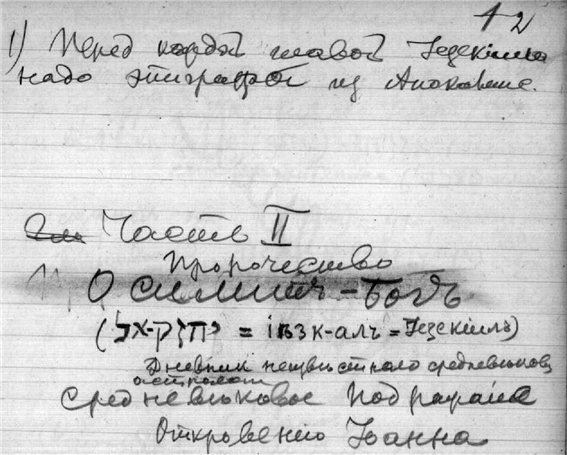 12
1) Перед каждой главой Iезекiиля
надо эпиграфом из Апокалипс.
Часть II
Пророчество
1) О силитъ-Богъ
(יחזק-אל = iѣзк-алъ = Iезекiилъ)
Дневник неизвѣстнаго средневѣковаго
Средневѣковое подражанiе
Откровенiю Iоанна